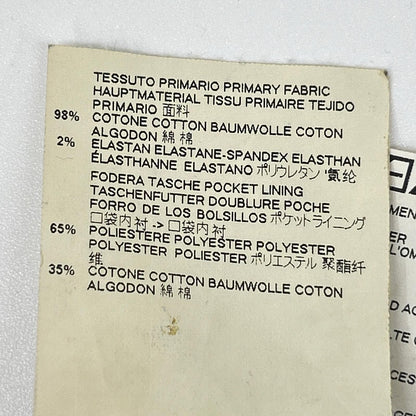 TESSUTO PRIMARIO PRIMARY FABRIC
HAUPTMATERIAL TISSU PRIMAIRE TEJIDO
PRIMARIO 面料
98% COTONE COTTON BAUMWOLLE COTON
ALGODON 綿 棉
2% ELASTAN ELASTANE-SPANDEX ELASTHAN
ÉLASTHANNE ELASTANO ポリウレタン 氨纶
FODERA TASCHE POCKET LINING
TASCHENFUTTER DOUBLURE POCHE
FORRO DE LOS BOLSILLOS ポケットライニング
口袋内衬 -> 口袋内衬
65% POLIESTERE POLYESTER POLYESTER
POLYESTER POLIESTER ポリエステル 聚酯纤
维
35% COTONE COTTON BAUMWOLLE COTON
ALGODON 綿 棉
MEN
ER
L'OM
D AC
LTE
CES